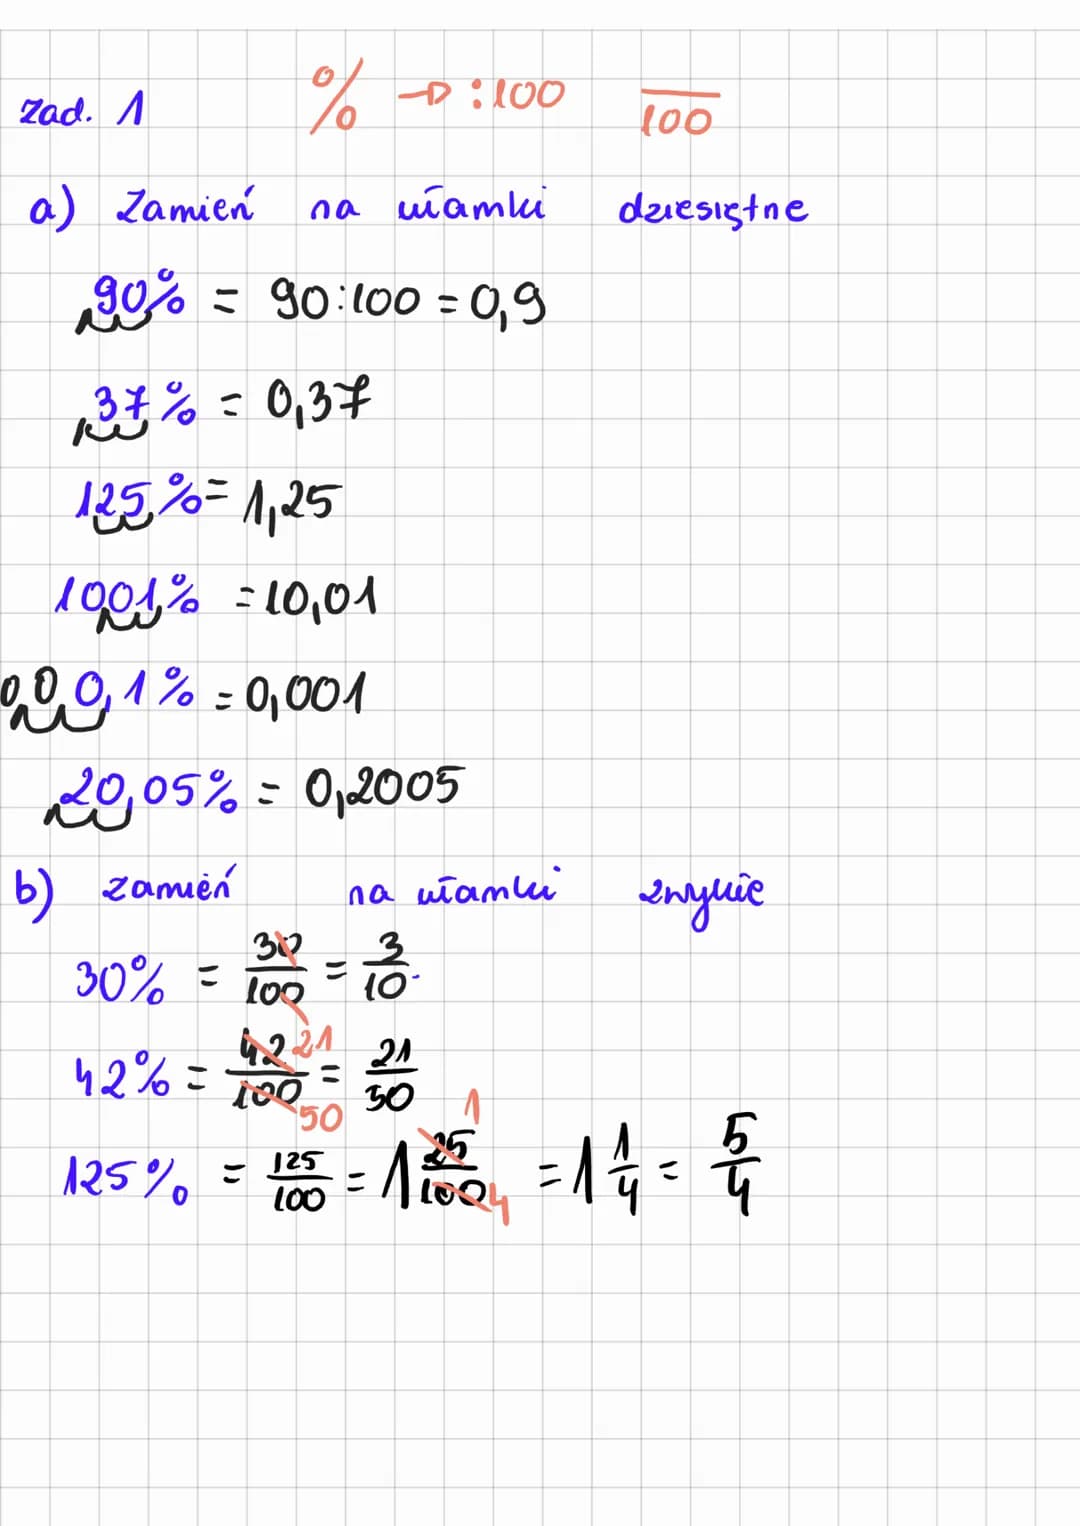 zad. 1 % → :100 —/100
a) Zamień na ułamki dziesiętne
90% = 90:100 = 0,9
37% = 0,37
125% = 1,25
1001% = 10,01
0 0 0,1% = 0,001
20,05% = 0,2005
b) zamień na ułamki zwykłe
30% = 30/100 = 3/10
42% = 42/100 21 50 = 21/50
125% = 125/100 = 1 25/100 1 4 = 1 1/4 = 5/4